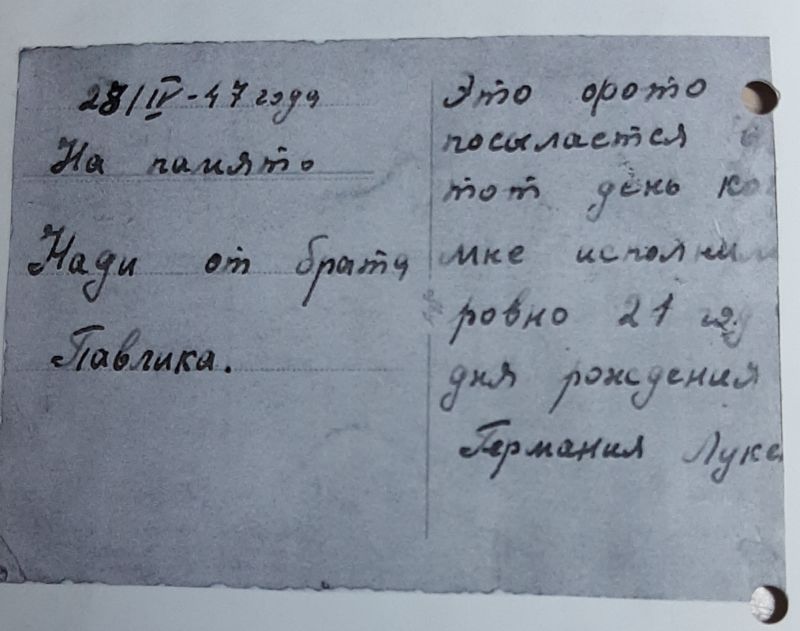 28/IV-47 года
На память
Нади от брата
Павлика.
Это фото
посылается в
тот день ко
мне исполни
ровно 21 год
дня рождения
Германия Луке